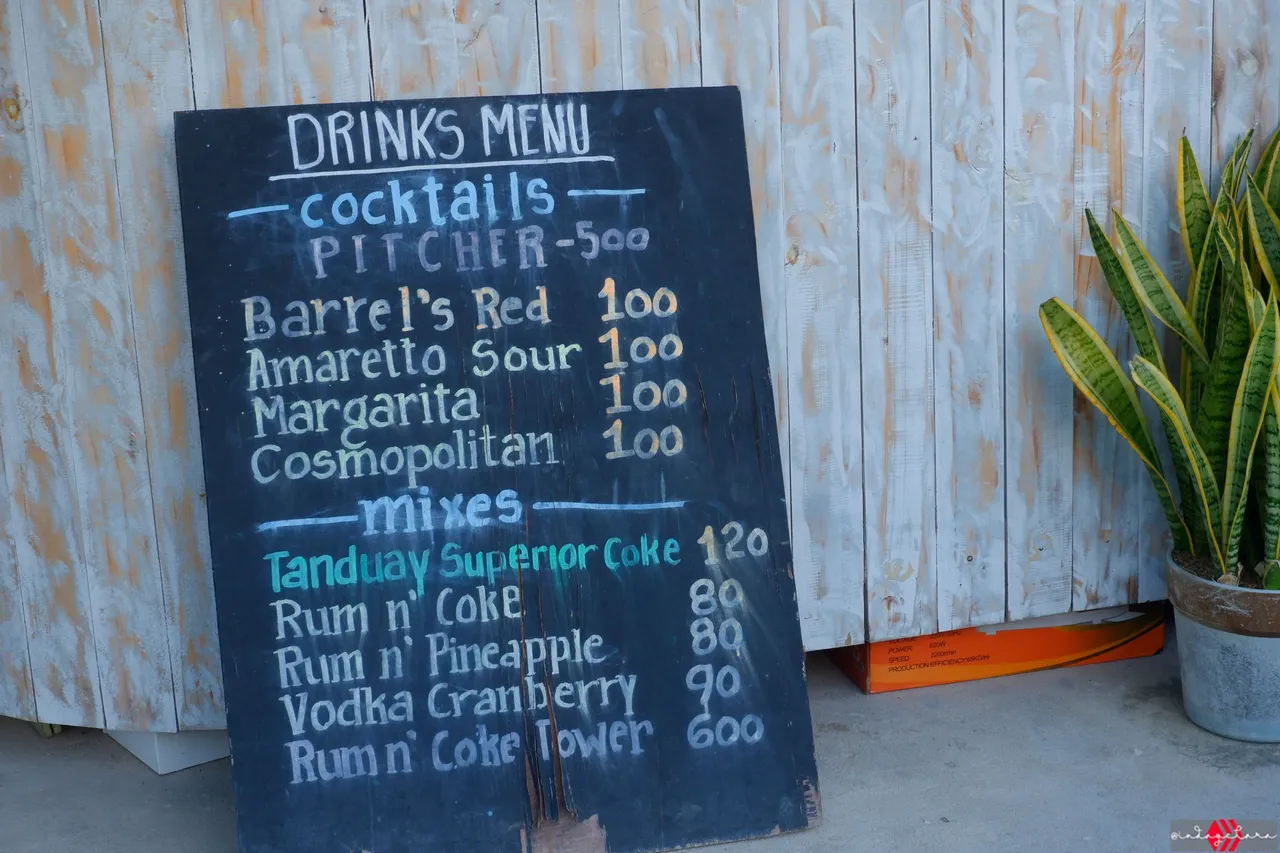 DRINKS MENU
cocktails
PITCHER - 500
Barrel's Red 100
Amaretto Sour 100
Margarita 100
Cosmopolitan 100
mixes
Tanduay Superior Coke 120
Rum n' Coke 80
Rum n' Pineapple 80
Vodka Cranberry 90
Rum n' Coke Tower 600
POWER
SPEED
PRODUCTION EFFICIENCY